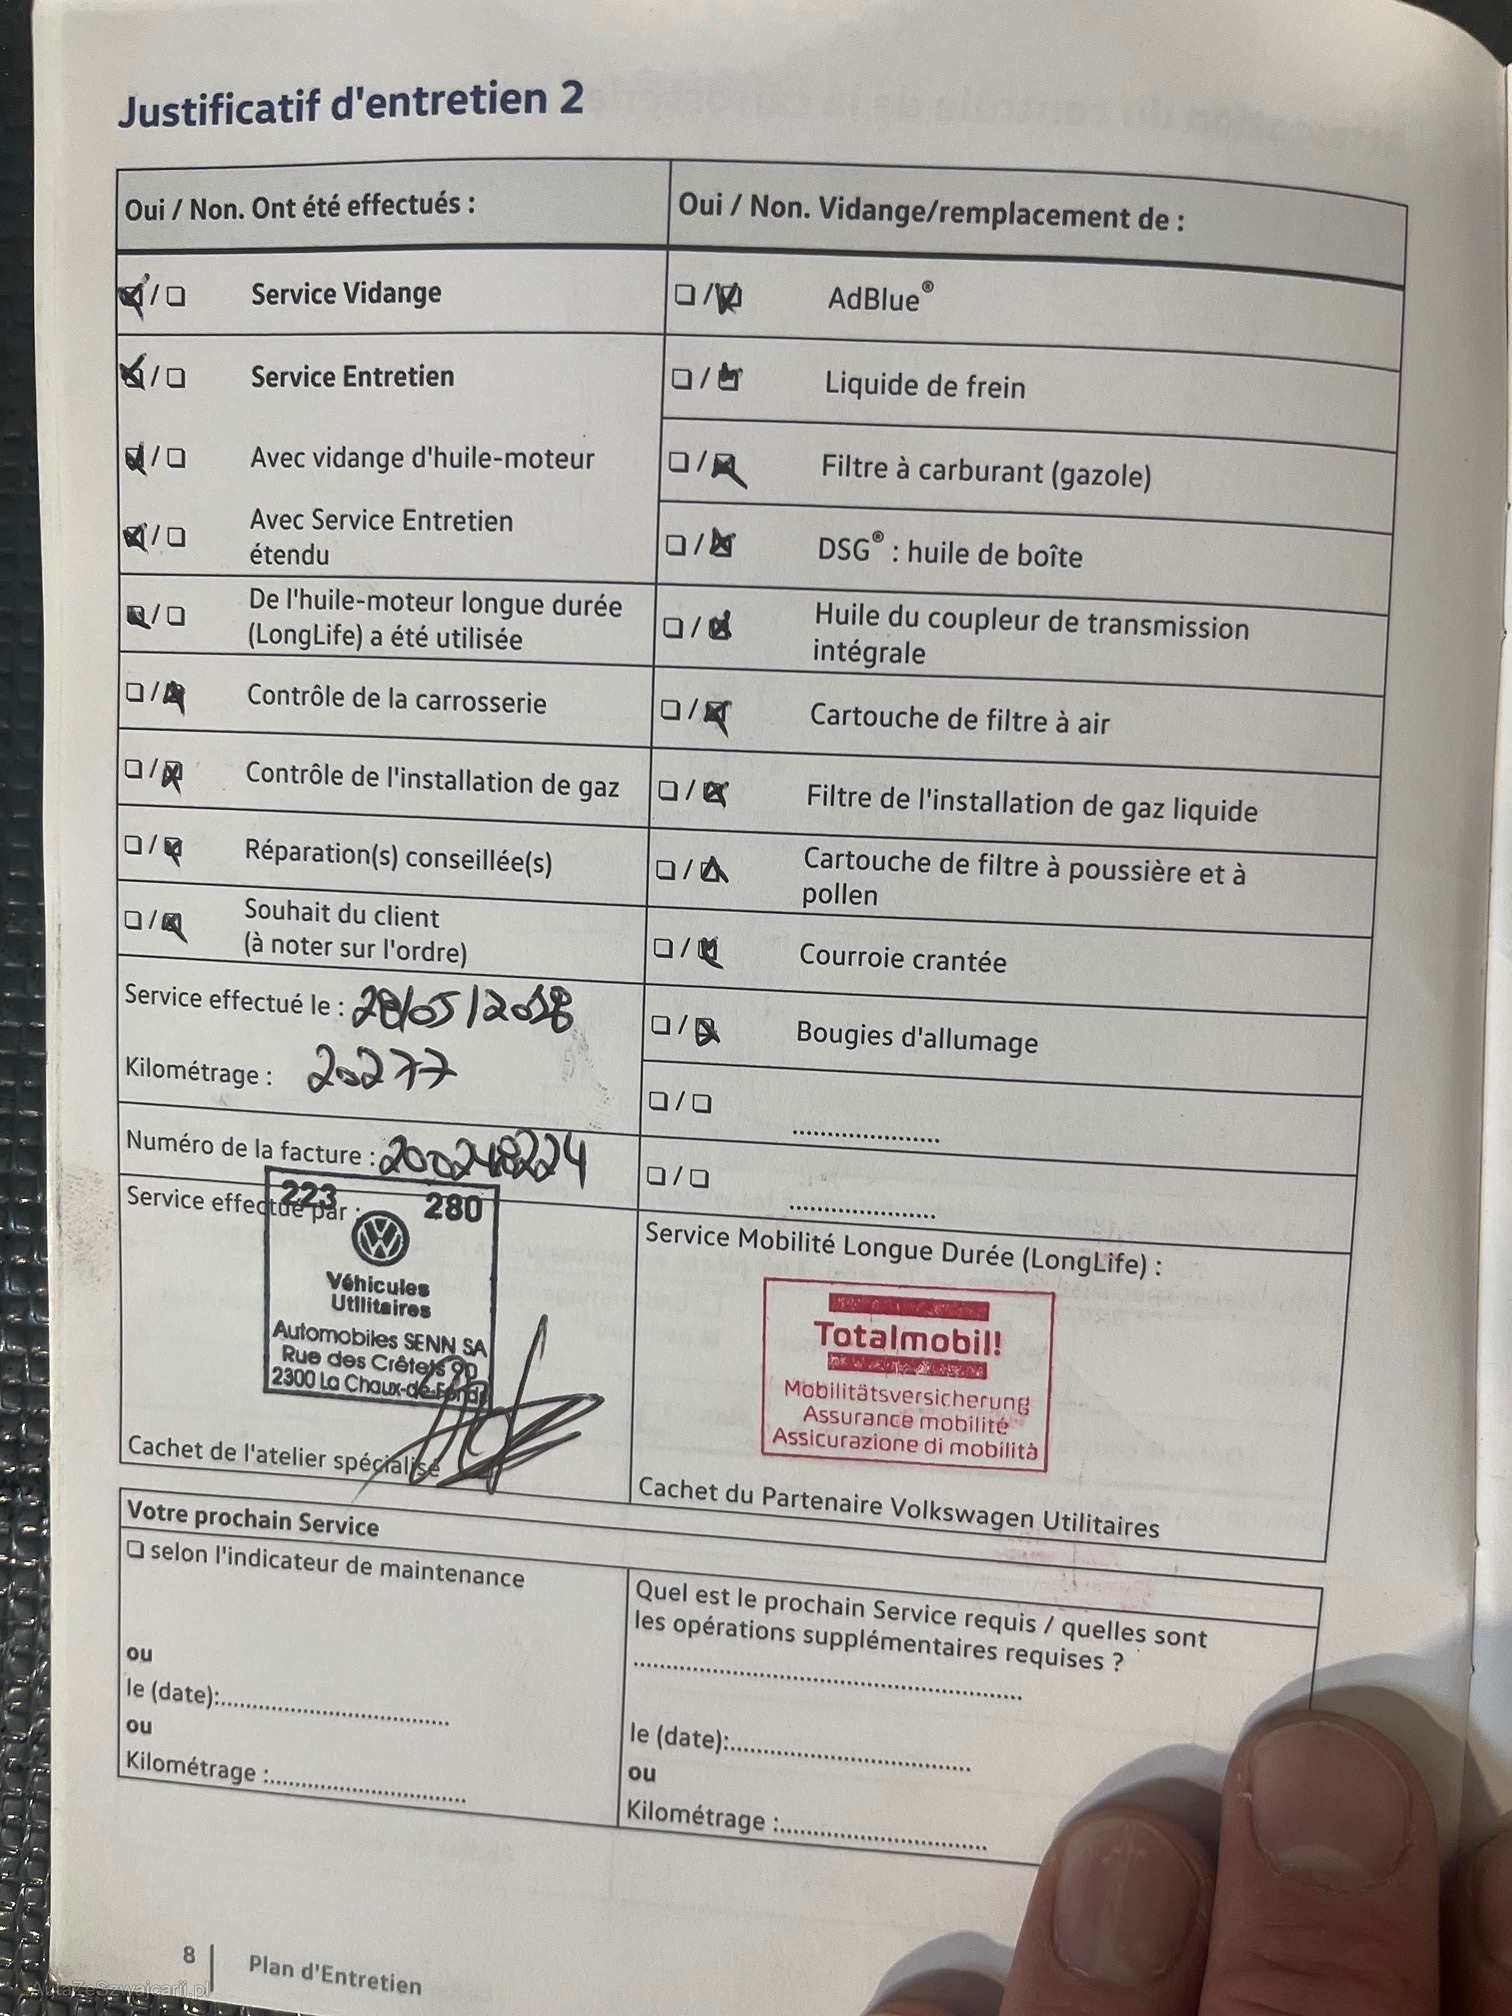 Justificatif d'entretien 2
Oui / Non. Ont été effectués :
Service Vidange
Service Entretien
Avec vidange d'huile-moteur
Avec Service Entretien
étendu
De l'huile-moteur longue durée
(LongLife) a été utilisée
Contrôle de la carrosserie
Contrôle de l'installation de gaz
Réparation(s) conseillée(s)
Souhait du client
(à noter sur l'ordre)
Service effectué le : 28/05/2018
Kilométrage : 20277
Numéro de la facture : 200248224
Service effectué par :
223 280
Véhicules
Utilitaires
Automobiles SENN SA
Rue des Crêtets 90
2300 La Chaux-de-Fonds
Cachet de l'atelier spécialisé
Oui / Non. Vidange/remplacement de :
AdBlue®
Liquide de frein
Filtre à carburant (gazole)
DSG® : huile de boîte
Huile du coupleur de transmission
intégrale
Cartouche de filtre à air
Filtre de l'installation de gaz liquide
Cartouche de filtre à poussière et à
pollen
Courroie crantée
Bougies d'allumage
Service Mobilité Longue Durée (LongLife) :
Totalmobil!
Mobilitätsversicherung
Assurance mobilité
Assicurazione di mobilità
Cachet du Partenaire Volkswagen Utilitaires
Votre prochain Service
selon l'indicateur de maintenance
ou
le (date):
ou
Kilométrage :
Quel est le prochain Service requis / quelles sont
les opérations supplémentaires requises ?
le (date):
ou
Kilométrage :
8 | Plan d'Entretien
AutaZeSzwajcarii.pl